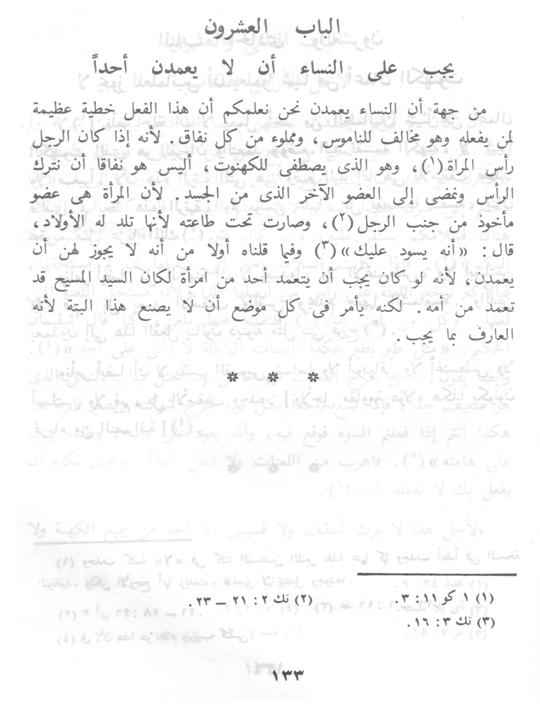 الباب العشرون
يجب على النساء أن لا يعمدن أحداً
من جهة أن النساء يعمدن نحن نعلمكم أن هذا الفعل خطية عظيمة
لمن يفعله وهو مخالف للناموس، ومملوء من كل نفاق. لأنه إذا كان الرجل
رأس المراة (١)، وهو الذى يصطفى للكهنوت، أليس هو نفاقا أن نترك
الرأس ونمضى إلى العضو الآخر الذى من الجسد. لأن المرأة هى عضو
مأخوذ من جنب الرجل (٢)، وصارت تحت طاعته لأنها تلد له الأولاد،
قال: «أنه يسود عليك» (٣) وفيما قلناه أولا من أنه لا يجوز لهن أن
يعمدن، لأنه لو كان يجب أن يتعمد أحد من امرأة لكان السيد المسيح قد
تعمد من أمه. لكنه يأمر فى كل موضع أن لا يصنع هذا البتة لأنه
العارف بما يجب.
* * *
(١) ١ كو ١١: ٣. (٢) تك ٢: ٢١ – ٢٣.
(٣) تك ٣: ١٦.
١٣٣